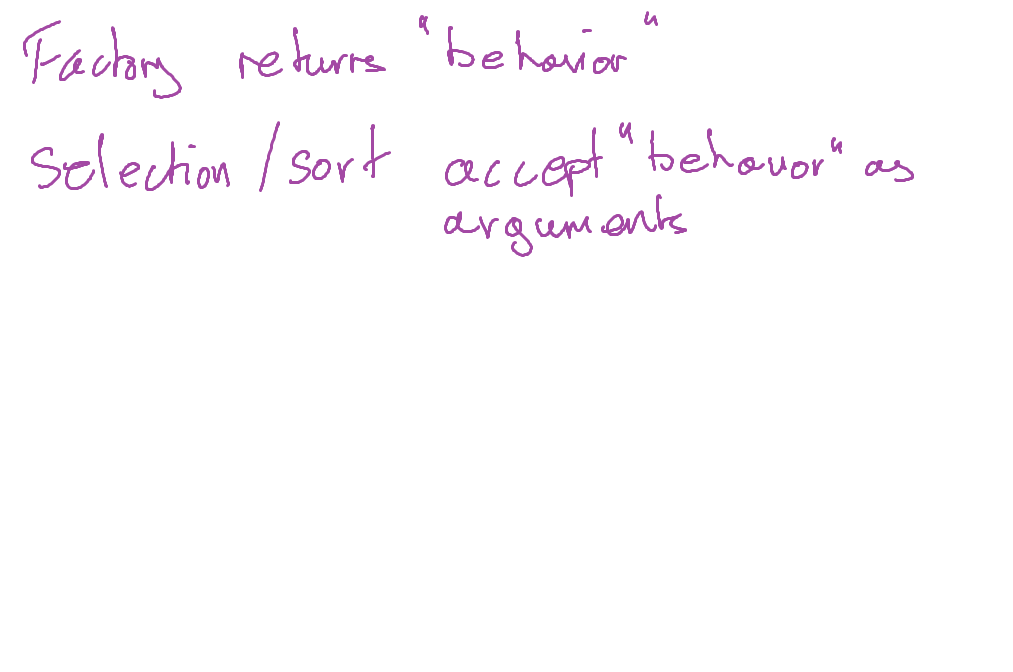 Factory returns "behavior"
Selection/sort accept "behavor" as
arguments